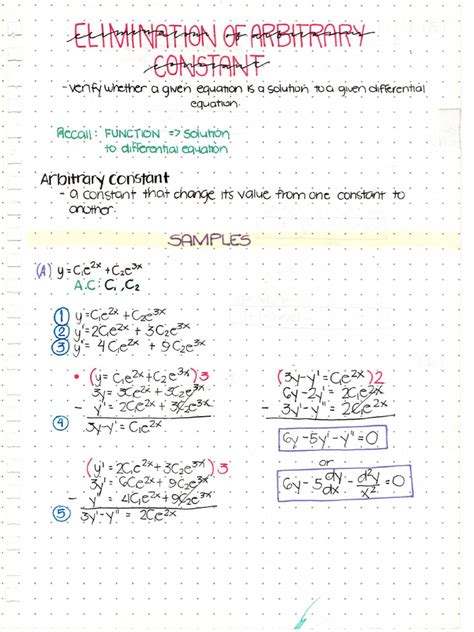 ELIMINATION OF ARBITRARY
CONSTANT
- verify whether a given equation is a solution to a given differential
equation.
Recall: FUNCTION => solution
to differential equation
Arbitrary Constant
- a constant that change its value from one constant to
another.
SAMPLES
(A) y=C₁e^2x + C₂e^3x
A.C: C₁, C₂
① y'=C₁e^2x + C₂e^3x
② y'=2C₁e^2x + 3C₂e^3x
③ y'= 4C₁e^2x + 9C₂e^3x
• (y= C₁e^2x + C₂e^3x)3
3y= 3C₁e^2x + 3C₂e^3x
- y' = 2C₁e^2x + 3C₂e^3x
④ 3y-y' = C₁e^2x
(y' = 2C₁e^2x + 3C₂e^3x)3
3y' = 6C₁e^2x + 9C₂e^3x
- y" = 4C₁e^2x + 9C₂e^3x
⑤ 3y'-y" = 2C₁e^2x
(3y-y' = C₁e^2x)2
6y-2y' = 2C₁e^2x
- 3y'-y" = 2C₁e^2x
6y-5y'-y"=0
or
6y-5 dy/dx - d²y/x² =0